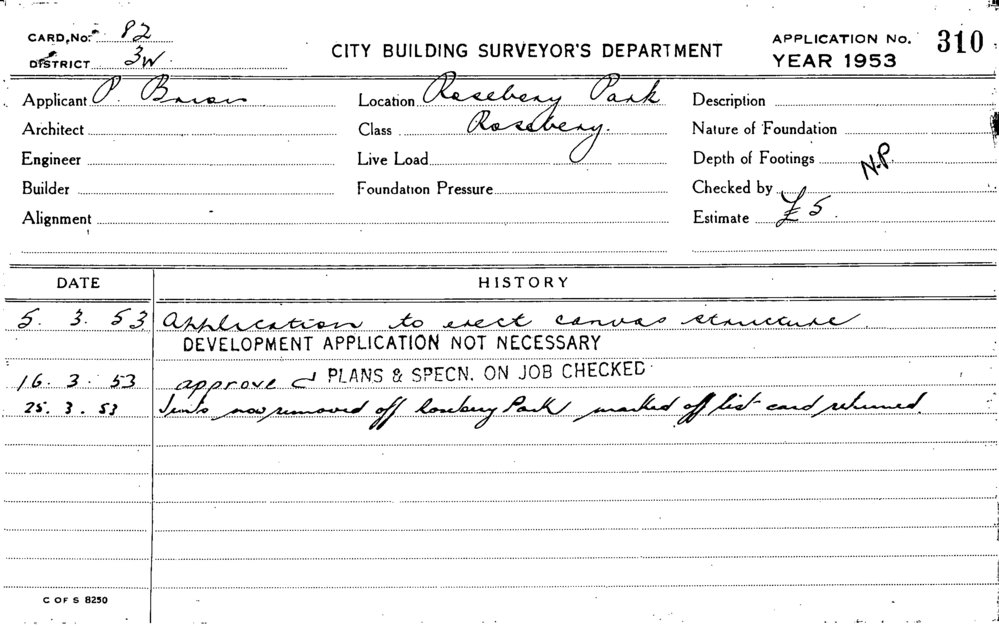 CARD, No. 82
DISTRICT 3W.
CITY BUILDING SURVEYOR'S DEPARTMENT
APPLICATION No. 310
YEAR 1953
Applicant P.
Location Rosebery Park
Description
Architect
Class Rosebery.
Nature of Foundation
Engineer
Live Load
Depth of Footings
N.P.
Builder
Foundation Pressure
Checked by
Alignment
Estimate £5
DATE HISTORY
5. 3. 53 Application to erect canvas structure
DEVELOPMENT APPLICATION NOT NECESSARY
16. 3. 53 approved PLANS & SPECN. ON JOB CHECKED
25. 3. 53 Tents now removed off Rosebery Park marked off list card returned
C OF S 8250